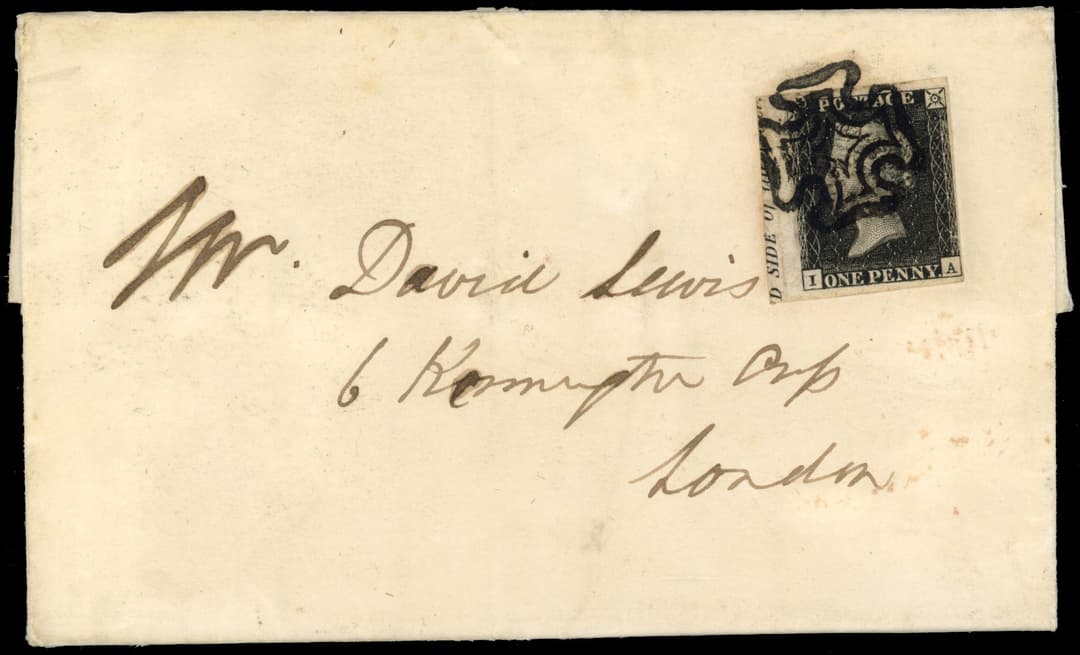 POSTAGE
D SIDE OF
I ONE PENNY A
Mr. David Lewis
6 Kennington
London